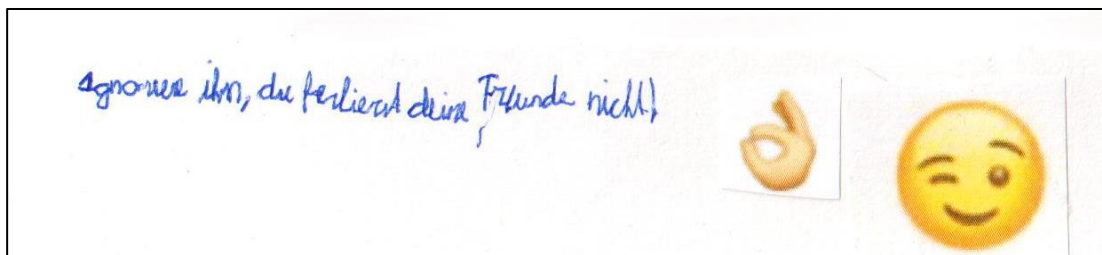 Ignoriere ihn, du ferlierst deine Freunde nicht!